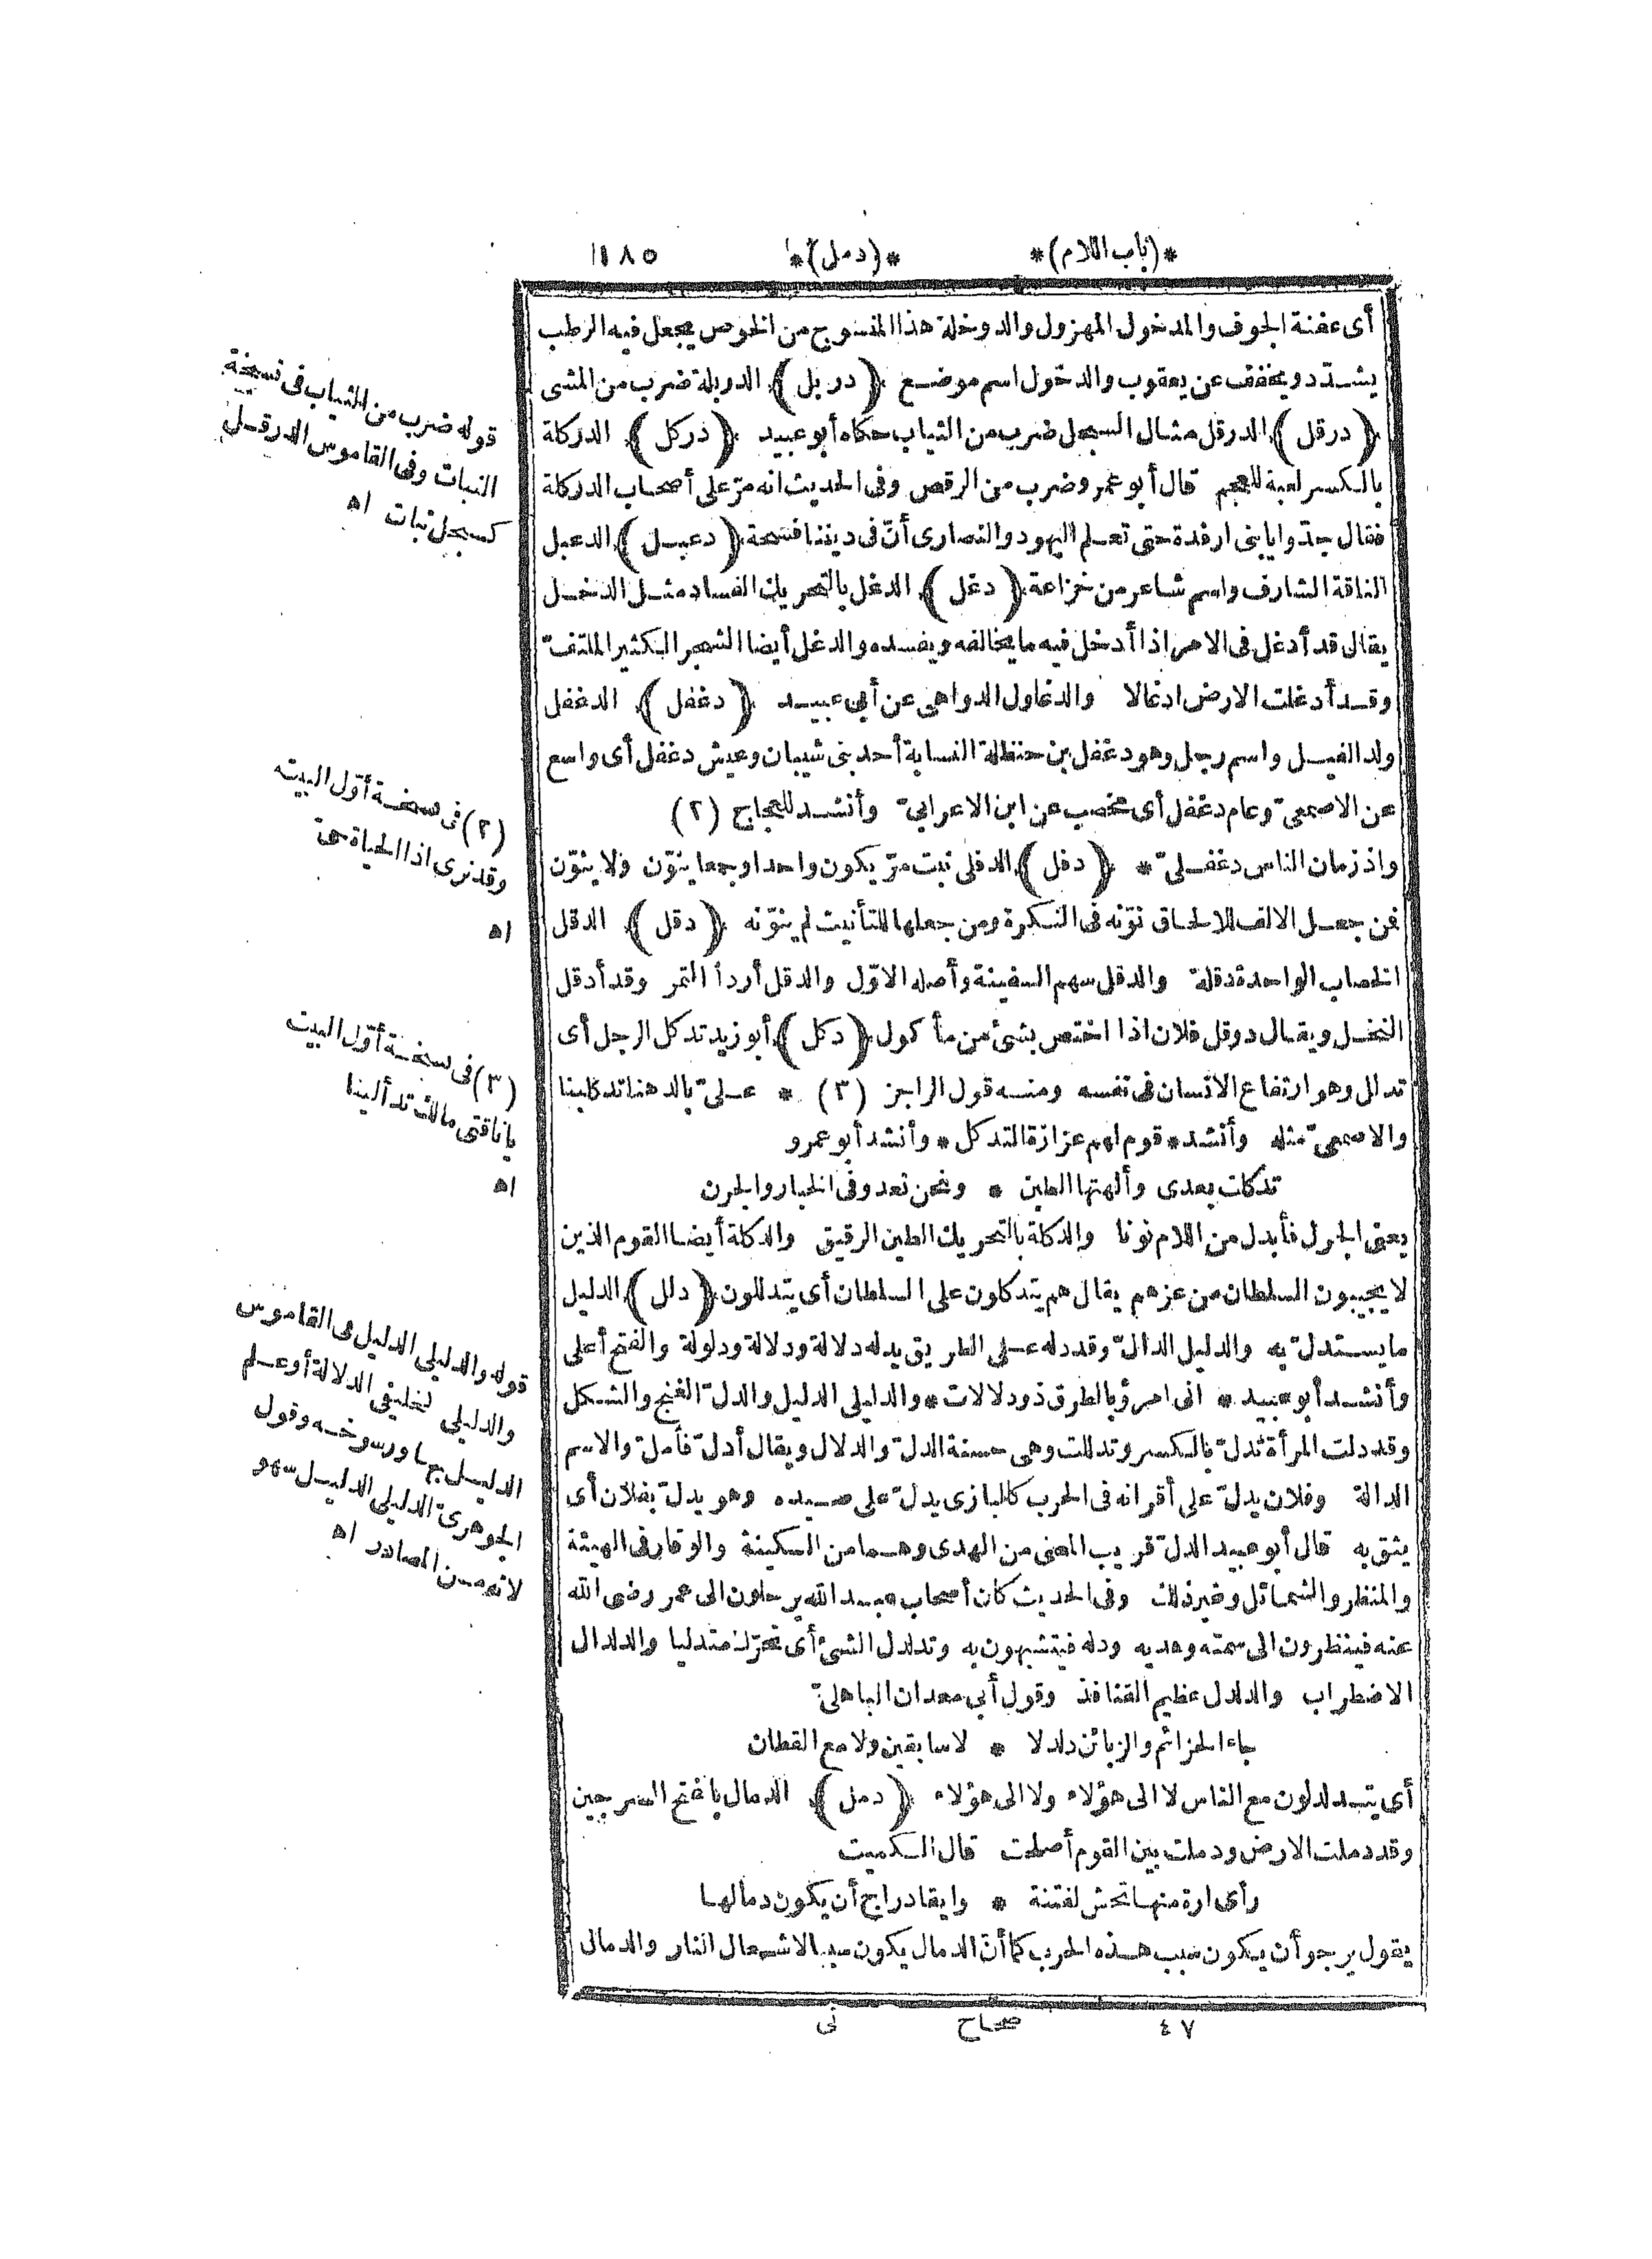 *(باب اللام)* *(دمل)* ١٨٥
أى عفنة الجوف والمدخول المهزول والدوخلة هذا المنسوج من الخوص يجعل فيه الرطب
يشدّد ويخفف عن يعقوب والدخول اسم موضع (دربل) الدربلة ضرب من المشى
(درقل) الدرقل مثال السبحل ضرب من الثياب حكاه أبو عبيد (دركل) الدركلة
بالكسر لعبة للعجم قال أبو عمرو ضرب من الرقص وفى الحديث انه مرّ على أصحاب الدركلة
فقال جدّوا يا بنى ارفدة حتى تعلم اليهود والنصارى أنّ فى ديننا فسحة (دعبل) الدعبل
الناقة الشارف واسم شاعر من خزاعة (دغل) الدغل بالتحريك الفساد مثل الدخل
يقال قد أدغل فى الامر اذا أدخل فيه ما يخالفه ويفسده والدغل أيضا الشجر الكثير الملتفّ
وقد أدغلت الارض ادغالا والدغاول الدواهى عن أبى عبيد (دغفل) الدغفل
ولد الفيل واسم رجل وهو دغفل بن حنظلة النسابة أحد بنى شيبان وعيش دغفل أى واسع
عن الاصمعىّ وعام دغفل أى مخصب عن ابن الاعرابىّ وأنشد للعجاج (٢)
واذ زمان الناس دغفلىّ * (دفل) الدفلى نبت مرّ يكون واحدا وجمعا ينوّن ولا ينوّن
فمن جعل الالف للالحاق نوّنه فى النكرة ومن جعلها للتأنيث لم ينوّنه (دقل) الدقل
الخصاب الواحدة دقلة والدقل سهم السفينة وأصله الاوّل والدقل أردأ التمر وقد أدقل
النخل ويقال دوقل فلان اذا اختص بشئ من مأكول (دكل) أبو زيد تدكل الرجل أى
تدلل وهو ارتفاع الانسان فى نفسه ومنه قول الراجز (٣) * علىّ بالدهنا تدكلينا
والاصمعىّ مثله وأنشد * قوم لهم عزازة التدكل * وأنشد أبو عمرو
تدكلت بعدى وألهتها الطبن * ونحن نعدو فى الخبار والجرن
يعنى الجرل فأبدل من اللام نونا والدكلة بالتحريك الطين الرقيق والدكلة أيضا القوم الذين
لا يجيبون السلطان من عزهم يقال هم يتدكلون على السلطان أى يتدللون (دلل) الدليل
ما يستدلّ به والدليل الدالّ وقد دله على الطريق يدله دلالة ودلالة ودلولة والفتح أعلى
وأنشد أبو عبيد * انى امرؤ بالطرق ذو دلالات * والدليلى الدليل والدلّ الغنج والشكل
وقد دلت المرأة تدلّ بالكسر وتدللت وهى حسنة الدلّ والدلال ويقال أدلّ فأملّ والاسم
الدالة وفلان يدلّ على أقرانه فى الحرب كالبازى يدلّ على صيده وهو يدلّ بفلان أى
يثق به قال أبو عبيد الدلّ قريب المعنى من الهدى وهما من السكينة والوقار فى الهيئة
والمنظر والشمائل وغير ذلك وفى الحديث كان أصحاب عبد الله يرحلون الى عمر رضى الله
عنه فينظرون الى سمته وهديه ودله فيتشبهون به وتدلدل الشئ أى تحرّك متدليا والدلدال
الاضطراب والدلدل عظيم القنافذ وقول أبى معدان الباهلىّ
جاء الحزائم والزبائن دلدلا * لا سابقين ولا مع القطان
أى يتدلدلون مع الناس لا الى هؤلاء ولا الى هؤلاء (دمل) الدمال بالفتح السرجين
وقد دملت الارض ودملت بين القوم أصلحت قال الكميت
رأى ارة منها تحش لفتنة * وايقاد راج أن يكون دمالها
يقول يرجو أن يكون سبب هذه الحرب كما أنّ الدمال يكون سببا لاشعال النار والدمال
٤٧ صحاح نى
قوله ضرب من الثياب فى نسخة
النبات وفى القاموس الدرقل
كسبحل نبات اه
(٢) فى نسخة أوّل البيت
وقد نرى اذا الحياة حى
اه
(٣) فى نسخة أوّل البيت
يا ناقتى مالك تدألينا
اه
قوله والدليلى الدليل فى القاموس
والدليلى كخليفى الدلالة أو علم
الدليل بها ورسوخه وقول
الجوهرىّ الدليلى الدليل سهو
لانه من المصادر اه